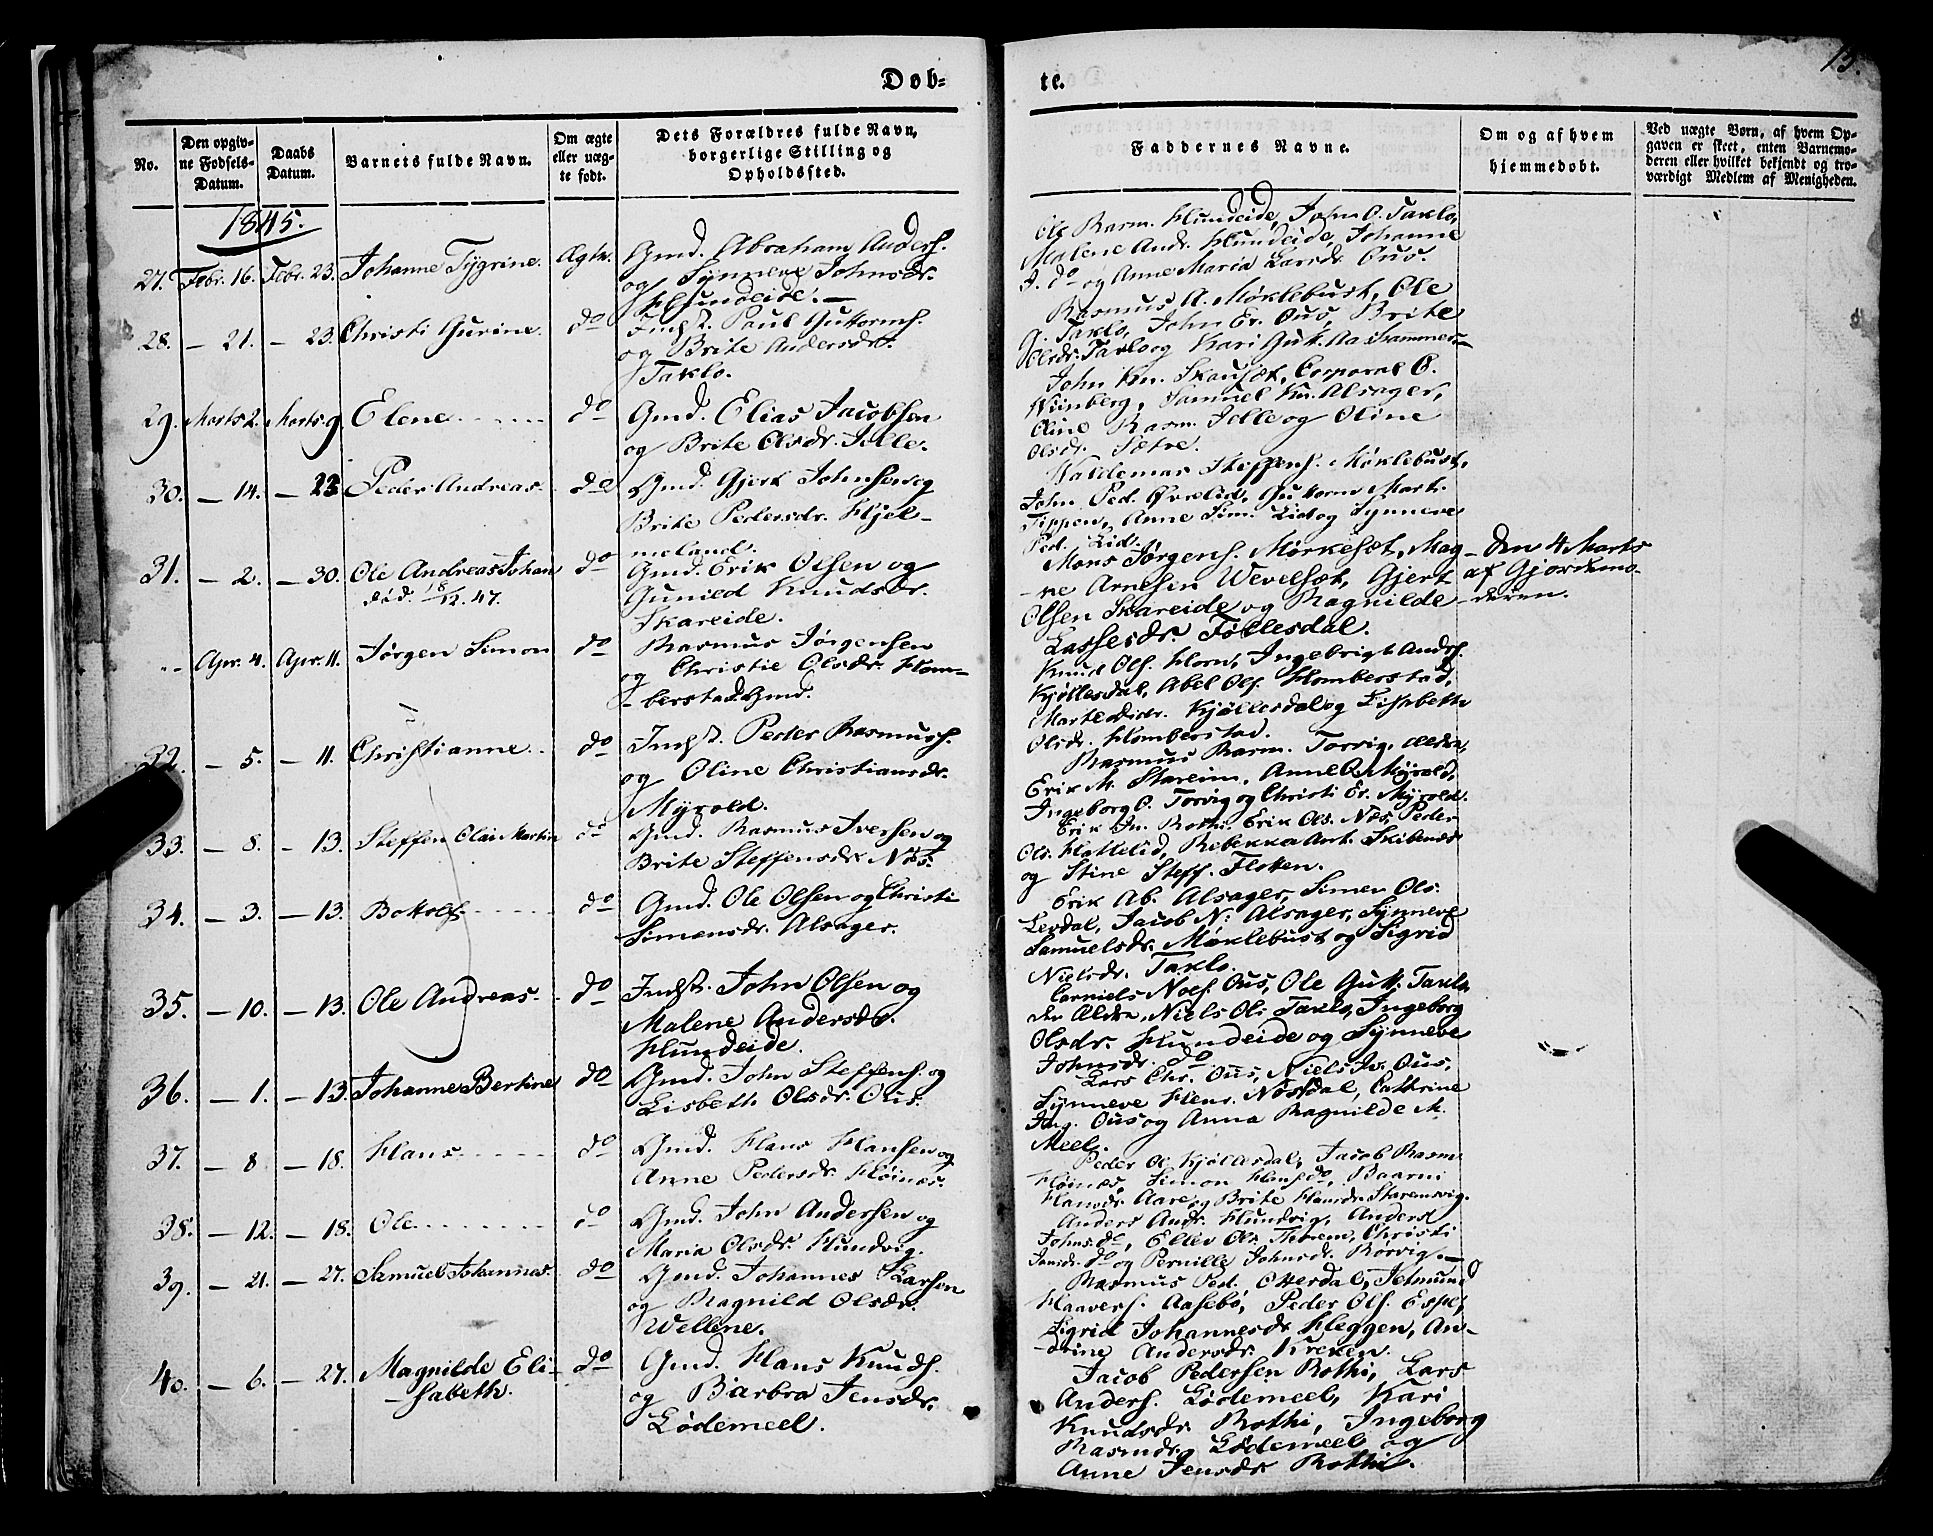 Døb-
te.
15.
No.
Den opgiv-
ne Fødsels-
Datum.
Daabs
Datum.
Barnets fulde Navn.
Om ægte
eller uæg-
te født.
Dets Forældres fulde Navn,
borgerlige Stilling og
Opholdssted.
Faddernes Navne.
Om og af hvem
hjemmedøbt.
Ved uægte Børn, af hvem Op-
gaven er skeet, enten Barnemo-
deren eller hvilket bekjendt og tro-
værdigt Medlem af Menigheden.
1845.
27. Febr. 16. Febr. 23. Johanne Tygrine. Ægte.
Gmd. Abraham Anders.
og Synneve Johnsdr.
Hundeide.
Ole Rasm. Hundeide, John O. Taklo,
Malene Andr. Hundeide, Johanne
J. do og Anne Maria Larsdr. Ous.
28. - 21. - 23. Christi Gurine. do
Indst. Paul Guttorms.
og Brite Andersdr.
Taklo.
Rasmus A. Møklebust, Ole
G. Taklo, John Er. Ous, Brite
Olsdr. Taklo og Kari Gut. Aa Hammer
29. Marts 2. Marts 9. Elene do
Gmd. Elias Jacobsen
og Brite Olsdr. Jelle.
John Kn. Skausæt, Corporal O.
Wiinberg, Samuel Kn. Alsager,
Oline Rasm. Jelle og Oline
Olsdr. Sætre.
30. - 14. - 23 Peder Andreas. do
Gmd. Gjert Johnsen og
Brite Pedersdr. Hjel-
meland.
Waldemar Steffens. Møklebust,
John Ped. Øvrelid, Guttorm Mart.
Tippen, Anne Sim. Lid og Synneve
Ped. Lid.
31. - 2. - 30. Ole Andreas Johan do
død. 18/12. 47.
Gmd. Erik Olsen og
Gunild Knudsdr.
Skareide.
Mons Jørgens. Mørkesæt, Mag
-ne Arnesen Wevelsæt, Gjert
Olsen Skareide og Ragnilde
Lassesdr. Follesdal.
- Den 4 Marts
af Gjordemo-
deren.
Apr. 4. Apr. 11. Jørgen Simon do
Rasmus Jørgensen
og Christie Olsdr. Hom-
berstad Gmd.
Knud Ols. Horn, Ingebrigt Anders.
Kjøllesdal, Abel Ols. Homberstad,
Marte Didr. Kjøllesdal og Lisabeth
Olsdr. Homberstad.
32. - 5. - 11. Christianne do
Indst. Peder Rasmuss.
og Oline Christiansdr.
Myrold.
Rasmus Rasm. Torvig, ældre,
Erik M. Stareim, Anne R. Myrold,
Ingeborg O. Torvig og Christi Er. Myrold.
33. - 8. - 13. Steffen Olai Martin do
Gmd. Rasmus Iversen og
Brite Steffensdr. Nøs.
Erik In. Rothi, Erik Ols. Nøs, Peder
Ols. Hattelid, Rebekka Ant. Skibenæs
og Stine Steff. Floten.
34. - 3. - 13. Bottolf do
Gmd. Ole Olsen og Christi
Simensdr. Alsager.
Erik Ab. Alsager, Simen Ols.
Lerdal, Jacob N. Alsager, Synneve
Samuelsdr. Møklebust og Sigrid
Nielsdr. Taklo.
35. - 10. - 13. Ole Andreas. do
Indst. John Olsen og
Malene Andersdr.
Hundeide.
Corniels Nols. Ous, Ole Gutt. Taklo
den Ældre, Niels Ols. Taklo, Ingeborg
Olsdr. Hundeide og Synneve
Johnsdr. do
36. - 1. - 13. Johanne Bertine do
Gmd. John Steffens. og
Lisbeth Olsdr. Ous.
Lars Chr. Ous, Niels Js. Ous,
Synneve Henr. Nosdal, Cathrine
Ing. Ous og Anna Ragnilde M.
Meel.
37. - 8 - 18. Hans do
Gmd. Hans Hansen og
Anne Pedersdr. Høinæs.
Peder O. Kjøllesdal, Jacob Rasm.
Høinæs, Simon Hans. do, Baarni
Hansdr. Aare og Brite Hansdr. Starensvig.
38. - 12. - 18. Ole do
Gmd. John Andersen og
Maria Olsdr. Hundvig.
Anders Andr. Hundvig, Anders
Johns. do, Ellev Ols. Christi
Jansdr. do og Pernille Johnsdr. Rørvig.
39. - 21. - 27. Samuel Johannes. do
Gmd. Johannes Larsen
og Ragnild Olsdr.
Wellene.
Rasmus Ped. Otterdal, Jetmund
Haavers. Aasebø, Peder Ols. Espe,
Sigrid Johannesdr. Heggen, An-
-drine Andersdr. Kreken.
40. - 6. - 27. Magnilde Eli- do
-sabeth.
Gmd. Hans Knuds.
og Barbra Jensdr.
Lødemeel.
Jacob Pedersen Rothi, Lars
Anders. Lødemeel, Kari
Knudsdr. Rothi, Ingeborg
Rasmdr. Lødemeel og
Anne Jensdr. Rothi.